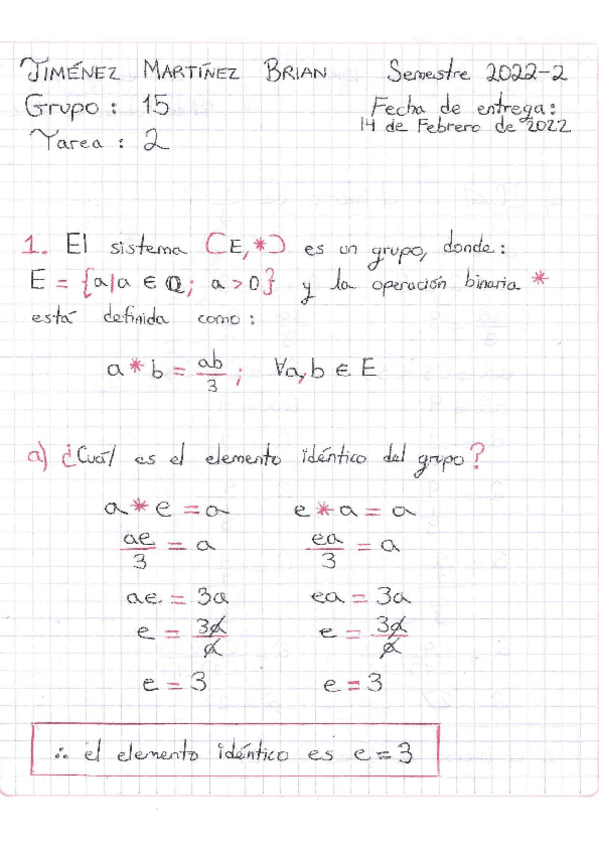 JIMÉNEZ MARTÍNEZ BRIAN Semestre 2022-2
Grupo : 15 Fecha de entrega:
Tarea : 2 14 de Febrero de 2022
1. El sistema (E,*) es un grupo, donde:
E = {a|a ∈ ℚ; a > 0} y la operación binaria *
está definida como:
a * b = ab/3 ; ∀a,b ∈ E
a) ¿Cuál es el elemento idéntico del grupo?
a * e = a e * a = a
ae/3 = a ea/3 = a
ae = 3a ea = 3a
e = 3a/a e = 3a/a
e = 3 e = 3
∴ el elemento idéntico es e = 3